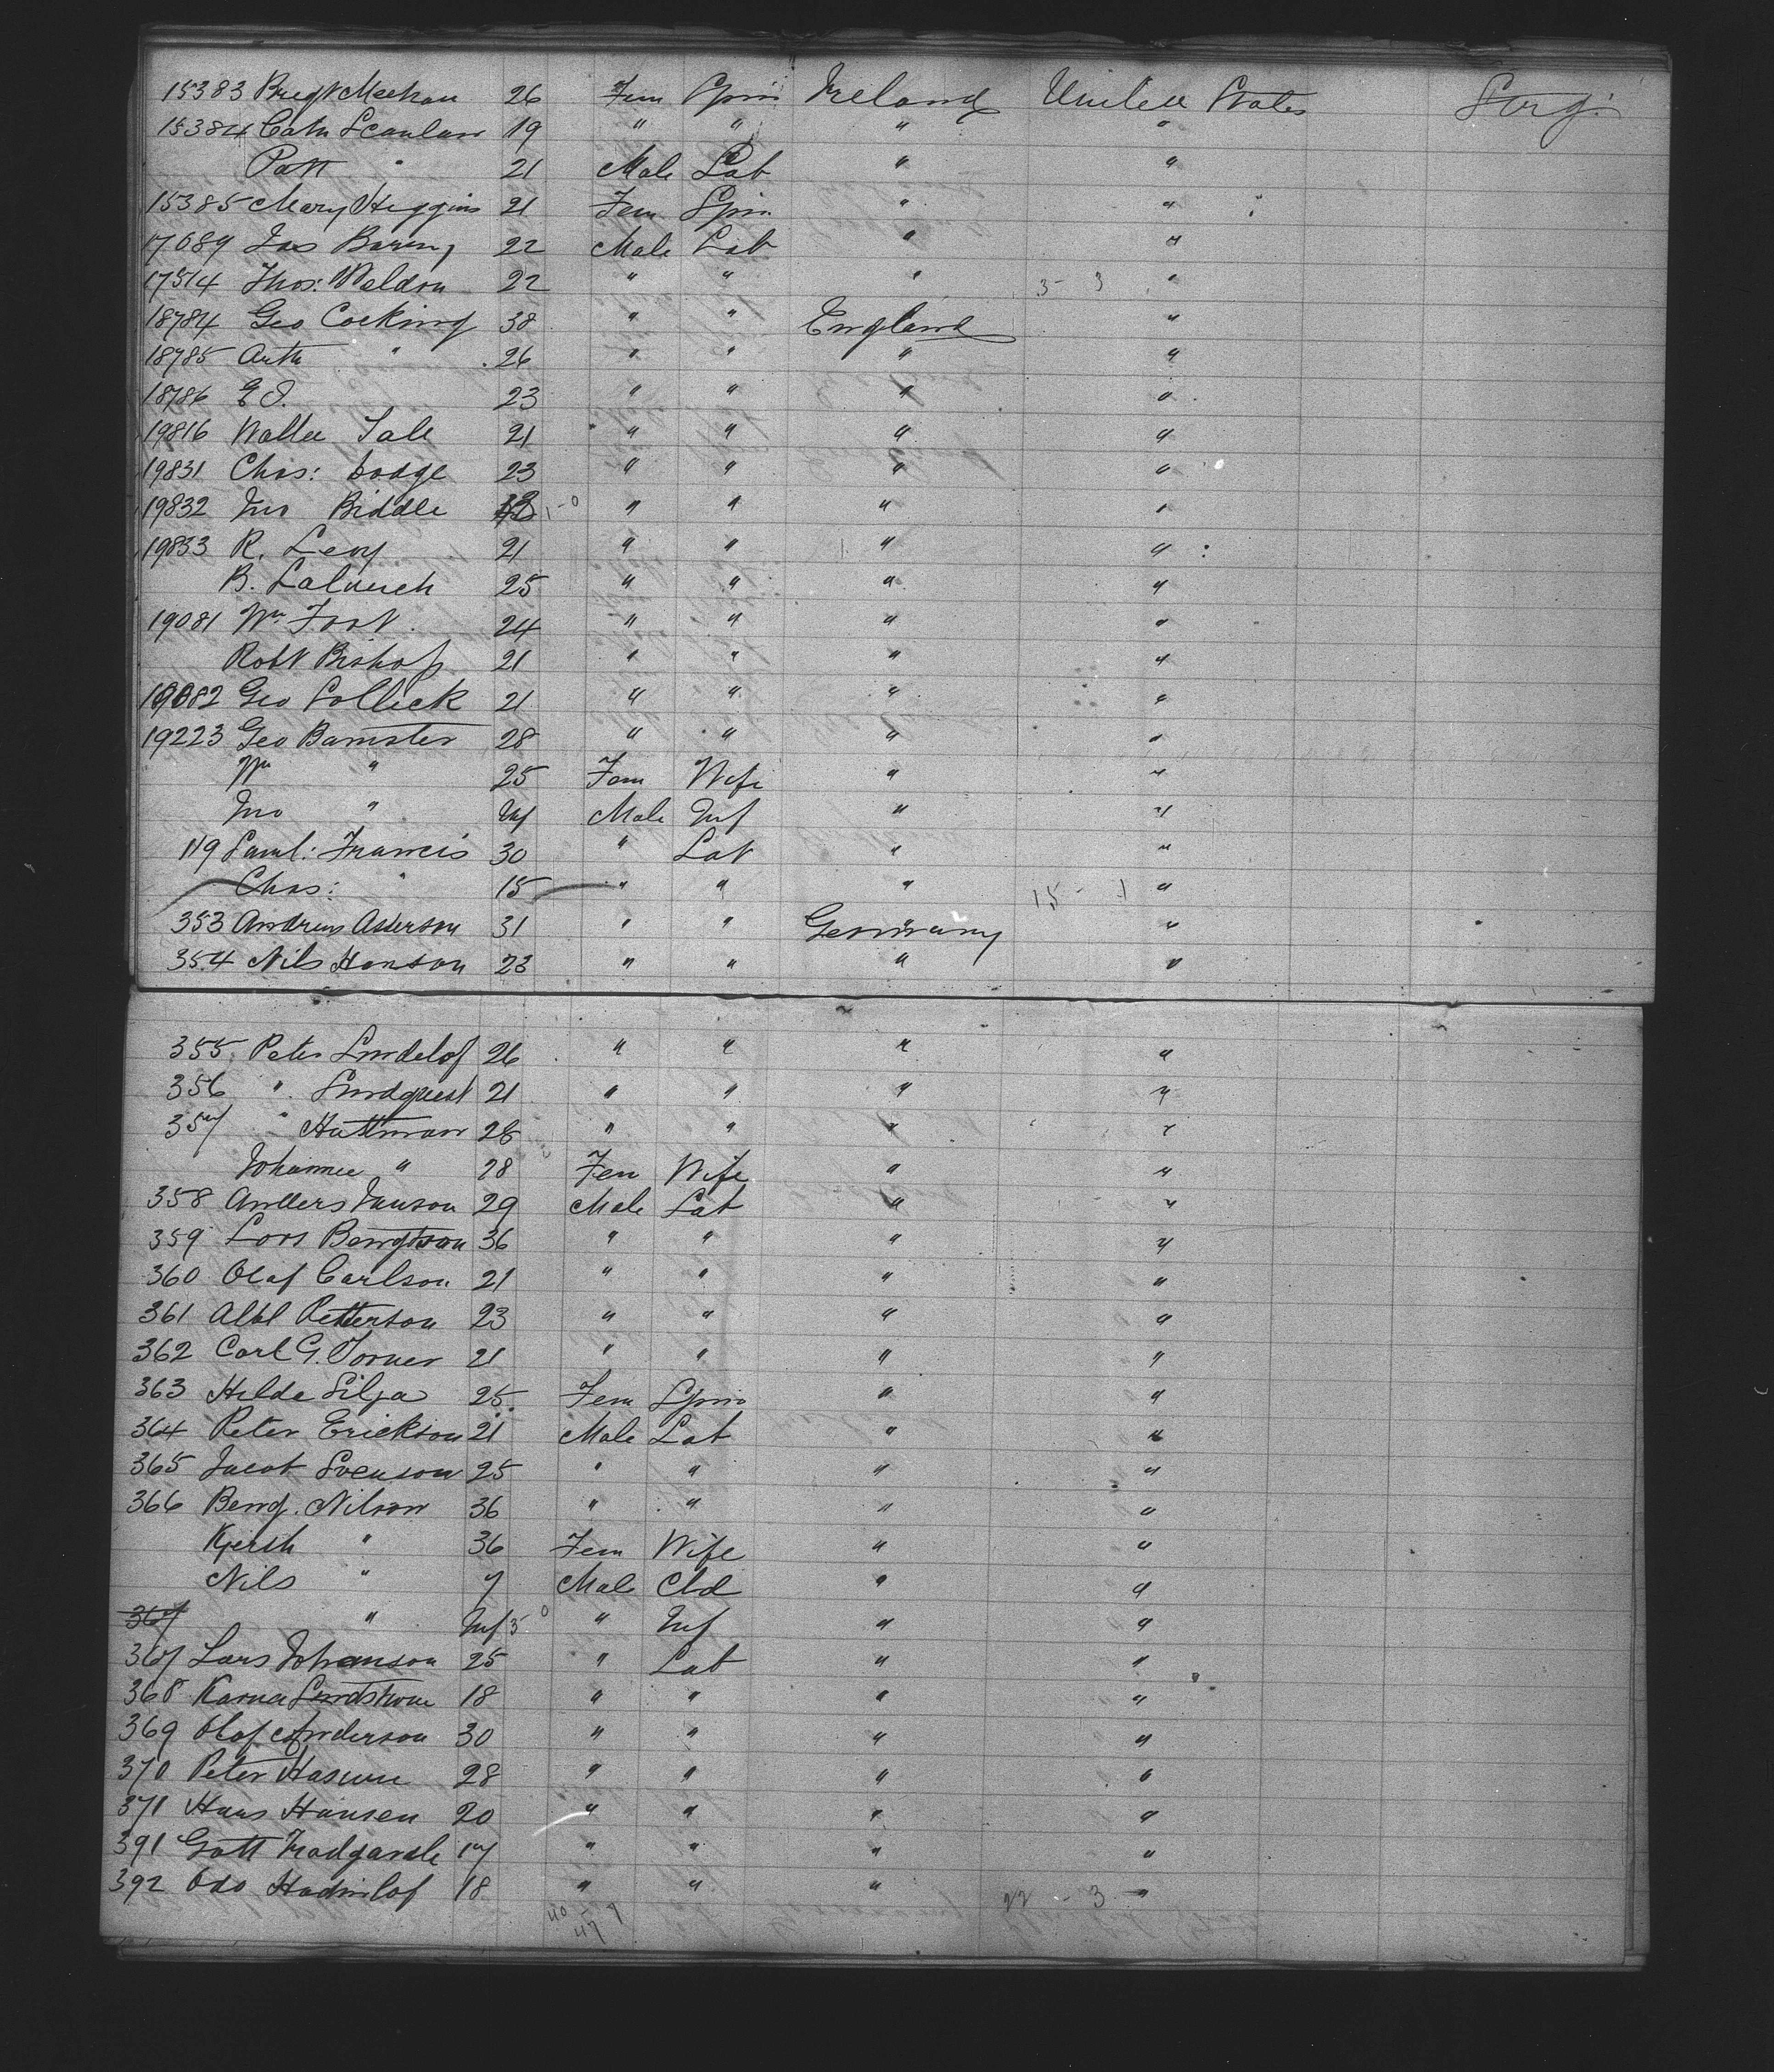 15383 Bridgt Meehan 26 Fem Spin Ireland United States Strg:
15384 Cath Scanlan 19 " " " "
Patt " 21 Male Lab " "
15385 Mary Higgins 21 Fem Spin " "
17689 Jas 22 Male Lab " "
17514 Thos: Weldon 22 " " " 3 - 3 "
18784 Geo Cocking 38 " " England "
18785 Arth " 26 " " " "
18786 Ed. 23 " " " "
19816 Walter Tale 21 " " " "
19831 Chas: Dodge 23 " " " "
19832 Jno Biddle 1-0 " " " "
19833 R. Levy 21 " " " "
B. 25 " " " "
19081 Wm Foot 24 " " " "
Robt Bishop 21 " " " "
19082 Geo Sollick 21 " " " "
19223 Geo Banister 28 " " " "
" 25 Fem Wife " "
Jno " Inf Male Inf " "
119 Saml: Francis 30 " Lab " "
Chas: " 15 " " " 15 - 1 "
353 Andreas Asserson 31 " " Germany "
354 Nils Hanson 23 " " " "
355 Peter Lindelof 26 " " " "
356 " Lindquest 21 " " " "
357 " Huttman 28 " " " "
Johannee " 28 Fem Wife " "
358 Anders Janson 29 Male Lab " "
359 Lars Bengtson 36 " " " "
360 Olaf Carlson 21 " " " "
361 Albl Petterson 23 " " " "
362 Carl G. Torner 21 " " " "
363 Hilda Silja 25 Fem Spin " "
364 Peter Erickson 21 Male Lab " "
365 Jacob Svenson 25 " " " "
366 Beng. Nilson 36 " " " "
Kjersh " 36 Fem Wife " "
Nils " 7 Male Chd " "
367 " Inf 3 0 " Inf " "
367 Lars Johanson 25 " Lab " "
368 Karna Lundstrom 18 " " " "
369 Olof Anderson 30 " " " "
370 Peter 28 " " " "
371 Hans Hansen 20 " " " "
391 Gott Tradgardh 17 " " " "
392 Odo 18 " " " 22 - 3 "
40 - 7
47